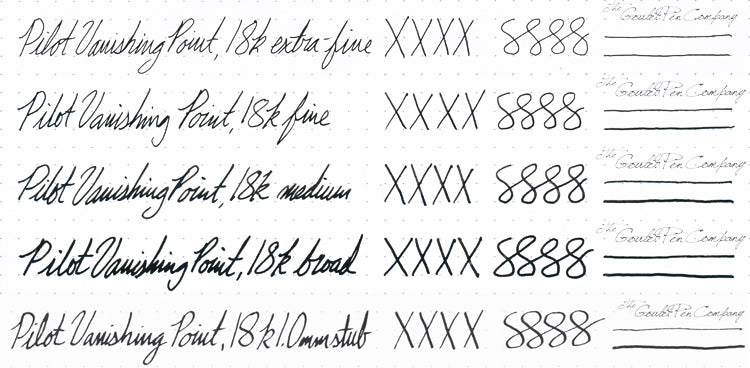 Pilot Vanishing Point, 18k extra-fine XXXX 8888 The Goulet Pen Company
Pilot Vanishing Point, 18k fine XXXX 8888 The Goulet Pen Company
Pilot Vanishing Point, 18k medium XXXX 8888 The Goulet Pen Company
Pilot Vanishing Point, 18k broad XXXX 8888 The Goulet Pen Company
Pilot Vanishing Point, 18k 1.0mm stub XXXX 8888 The Goulet Pen Company